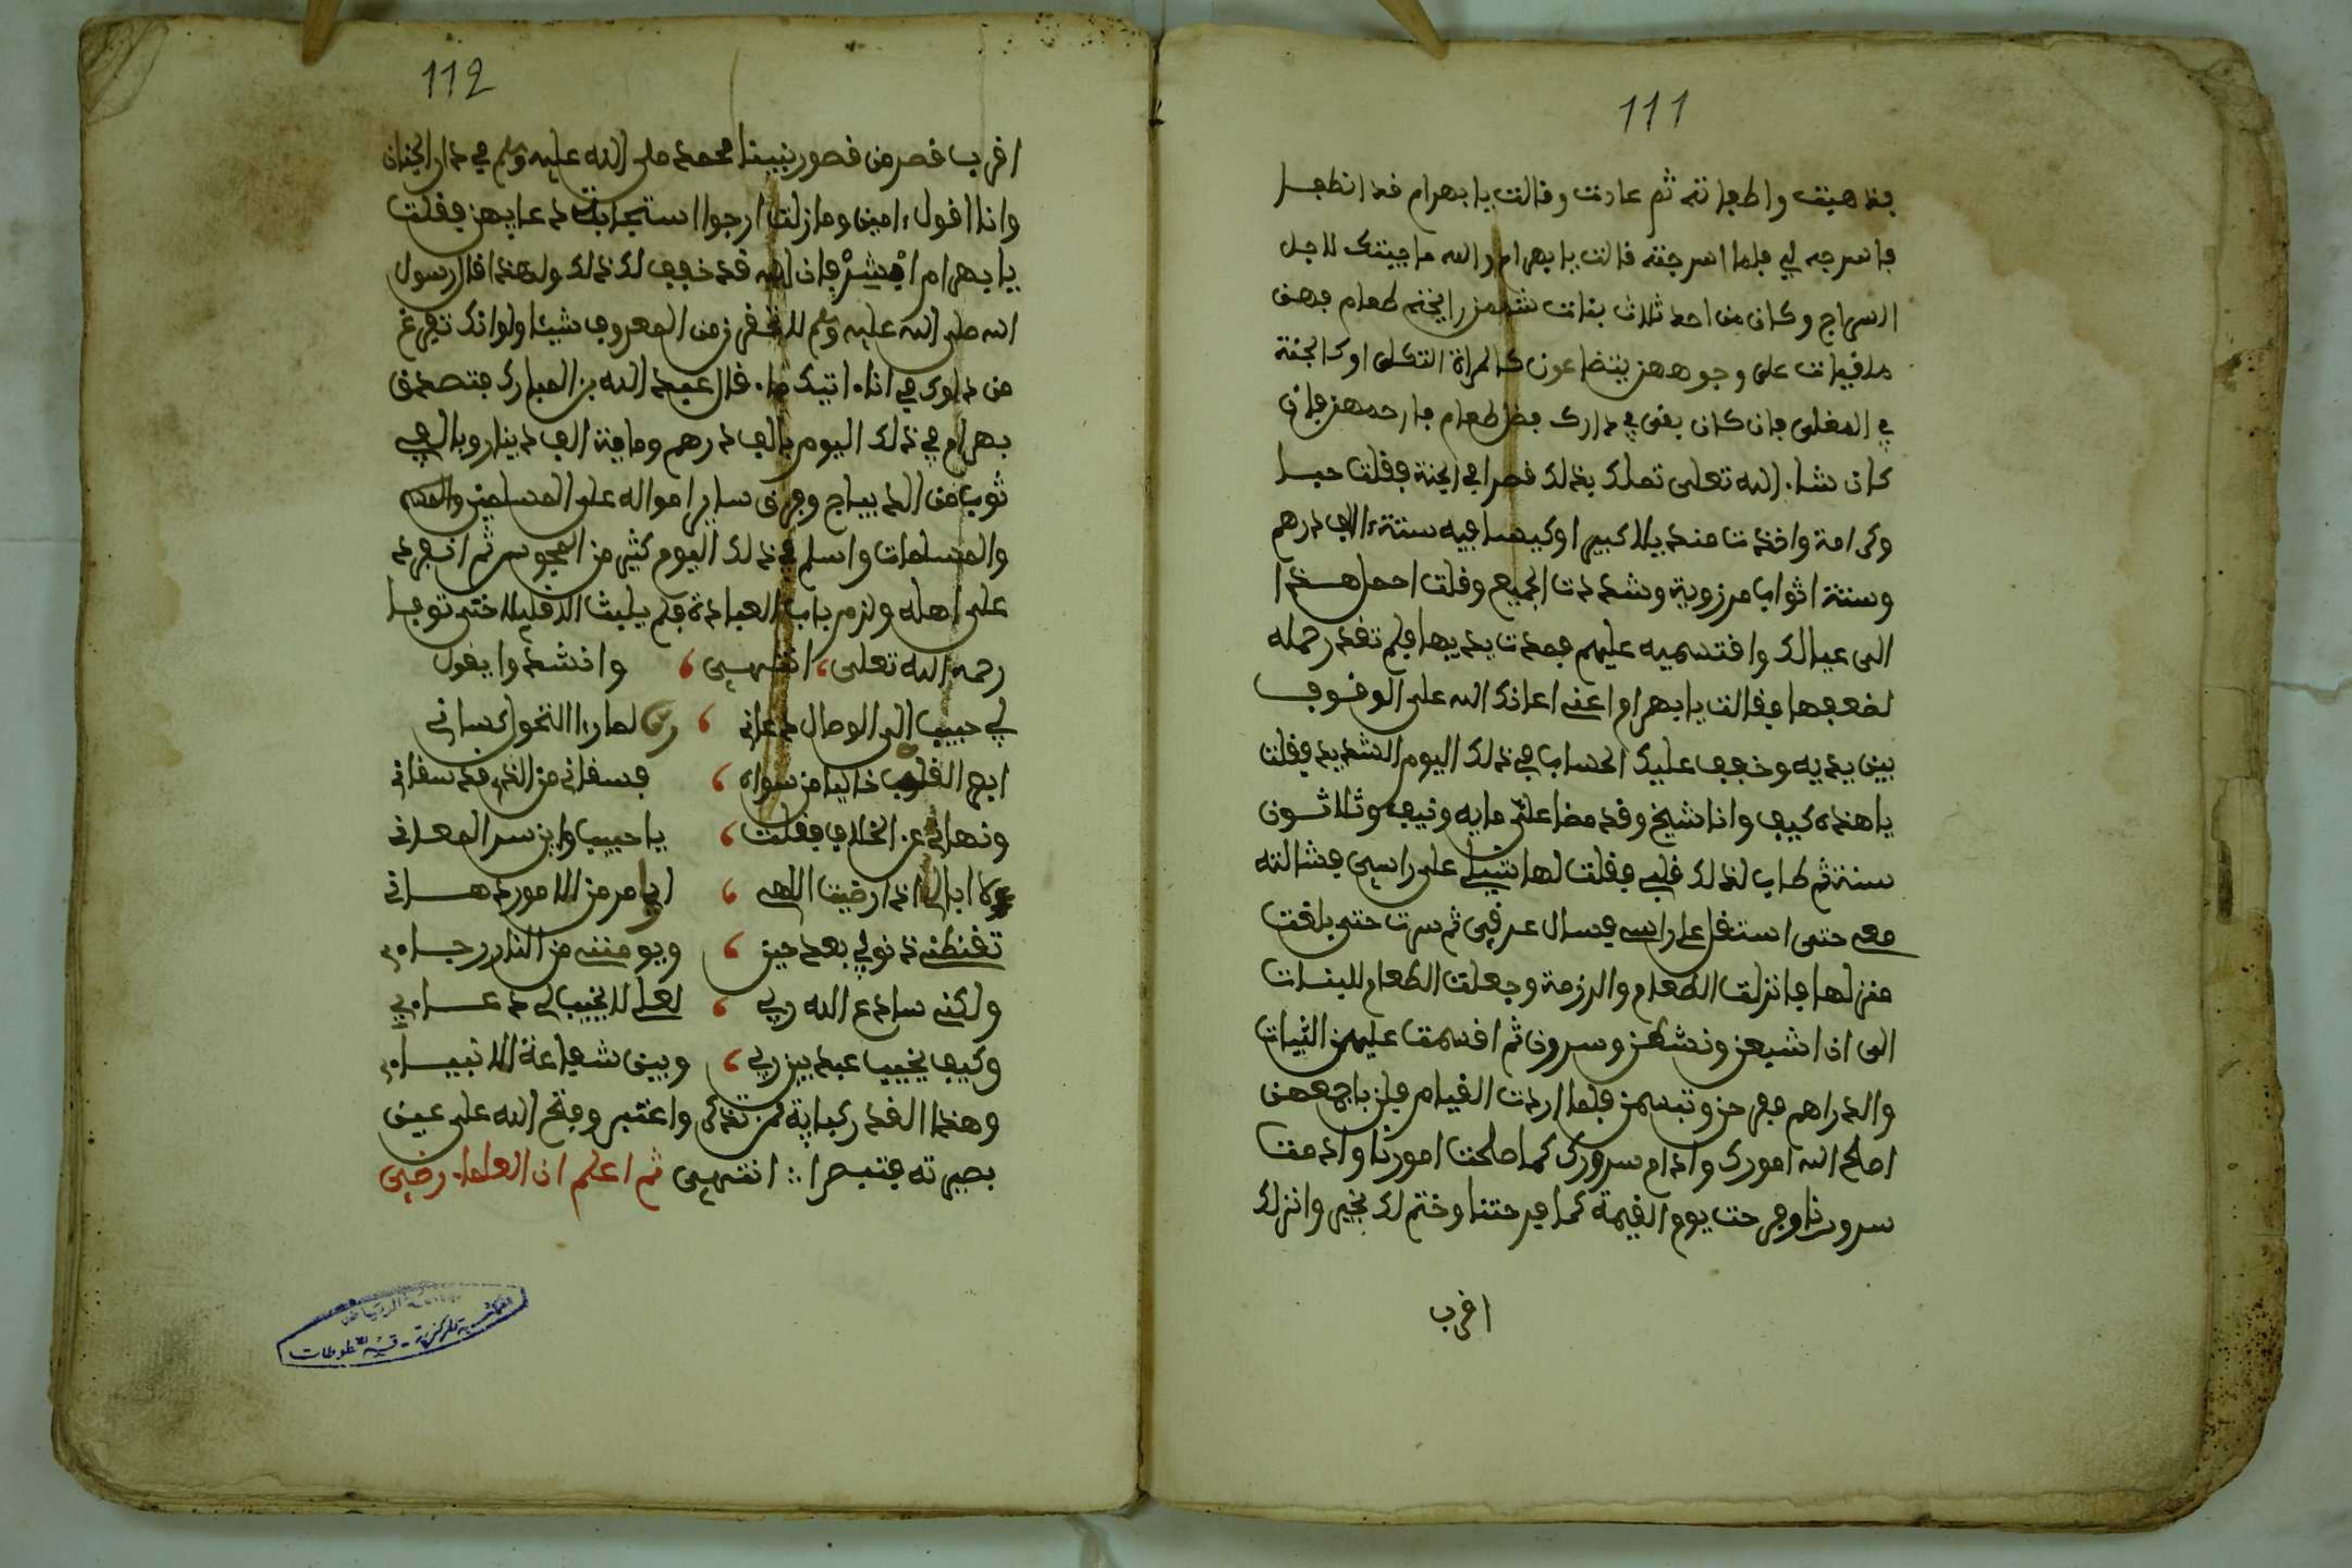 111
فذهبت واطفاته ثم عادت وقالت يا بهرام قد انطفا
فاسرجه لي فلما اسرجته قالت يا بهرام والله ما جيتك لاجل
السراج وكان من احد ثلاث بنات شممن رايحة طعام فهن
ملقيات على وجوههن يتضاعون كالمراة الثكلى او كالحبة
في المغلى فان كان بقى في دارك فضل طعام فارحمهن فان
كان شاء الله تعلى تملك بذلك قصرا في الجنة فقلت حبا
وكرامة واخذت منديلا كبيرا وكيسا فيه ستة ءالاف درهم
وستة اثواب مرزوية وشددت الجميع وقلت احمل هذا
الى عيالك واقتسميه عليهم فمدت يديها فلم تقدر حمله
لضعفها فقالت يا بهرام اعني اعانك الله على الوقوف
بين يديه وخفف عليك الحساب في ذلك اليوم الشديد فقلت
يا هذه كيف وانا شيخ وقد مضا علي مايه ونيف وثلاثون
سنة ثم طاب لذلك قلبي فقلت لها شيلي على راسي فشالته
معه حتى استقل على راسه فسال عرقي ثم سرت حتى بلغت
منزلها فانزلت الطعام والرزمة وجعلت الطعام للبنات
الى ان اشبعن ونشطن وسرون ثم اقسمت عليهن الثياب
والدراهم ففرحن وتبسمن فلما اردت القيام قلن باجمعهن
اصلح الله امورك وادام سرورك كما صلحت امورنا وادمت
سرورنا وفرحت يوم القيمة كما فرحتنا وختم لك بخير وانزلك
اقرب
112
اقرب قصر من قصور نبينا محمد صلى الله عليه وسلم في دار الجنان
وانا اقول ءامين وما زلت ارجوا استجابة دعايهن فقلت
يا بهرام ابشر فان الله قد خفف لك ذلك ولهذا قال رسول
الله صلى الله عليه وسلم لا تحقرن من المعروف شيئا ولو انك تفرغ
من دلوك في اناء اتيك ماء قال عبد الله بن المبارك فتصدق
بهرام في ذلك اليوم بالف درهم ومايتة الف دينار وبالفي
ثوب من الديباج وفرق ساير امواله على المسلمين
والمسلمات واسلم في ذلك اليوم كثير من المجوس ثم انفرد
على اهله ولزم باب العبادة فلم يلبث الا قليلا حتى توفا
رحمه الله تعلى، انتهى ، وانشدوا يقول
لي حبيب الى الوصال دعاني ، لما را النحول كساني
ابهج القلوب خاليا من سواه ، فسقاني من الذي قد سقاني
ونهاني عن الخلاف فقلت ، يا حبيب واين سر المعاني
لا ابال اذا رضيت الهي ، اي امر من الامور دهاني
تقنطني ذنوبي بعد حين ، ويومنني من النار رجاءي
ولكني سادع الله ربي ، لعل لا يخيب لي دعاءي
وكيف يخيب عبد بين ربي ، وبين شفاعة الانبياء
وهذا القدر كفاية لمن تذكر واعتبر وفتح الله على عين
بصيرته فتبصرا ∴ انتهى ثم اعلم ان العلماء رضي
جامعة الرياض
المكتبة المركزية - قسم المخطوطات